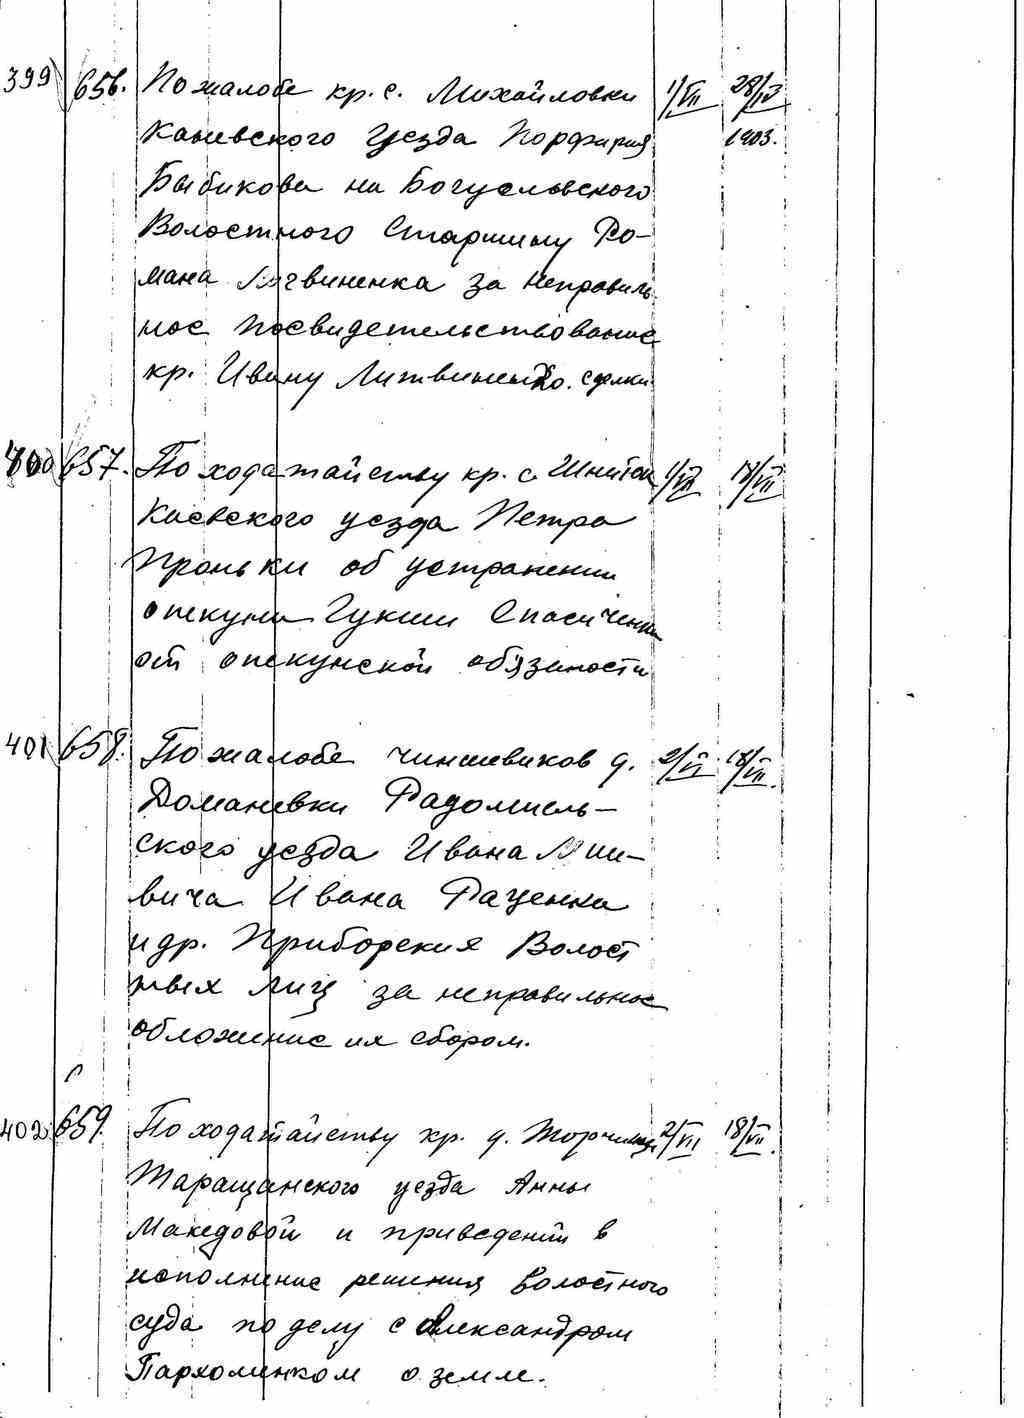 399 656. По жалобе кр. с. Михайловки 1/VII 28/IV
Каневского уезда Порфирия 1903.
Быбикова на Богуславского
Волостного Старшину Ро-
мана Литвиненка за неправиль
ное посвидетельствование
кр. Ивану Литвиненко. сделки
400 657. По ходатайству кр. с. Шнитов 1/VII 18/VII
Киевского уезда Петра
Проньки об устранении
опекуна Гукши
от опекунской обязаности
401 658. По жалобе чиншевиков д. 2/VI 18/VII.
Доманевки Радомысль-
ского уезда Ивана
вича Ивана Раценка
и др. Приборския Волост
ных лиц за неправильное
обложение их сбором.
402 659. По ходатайству кр. д. 2/VII 18/VII.
Таращанского уезда Анны
Македовой и приведении в
исполнение решения волостного
суда по делу с Александром
Пархоменком о земле.